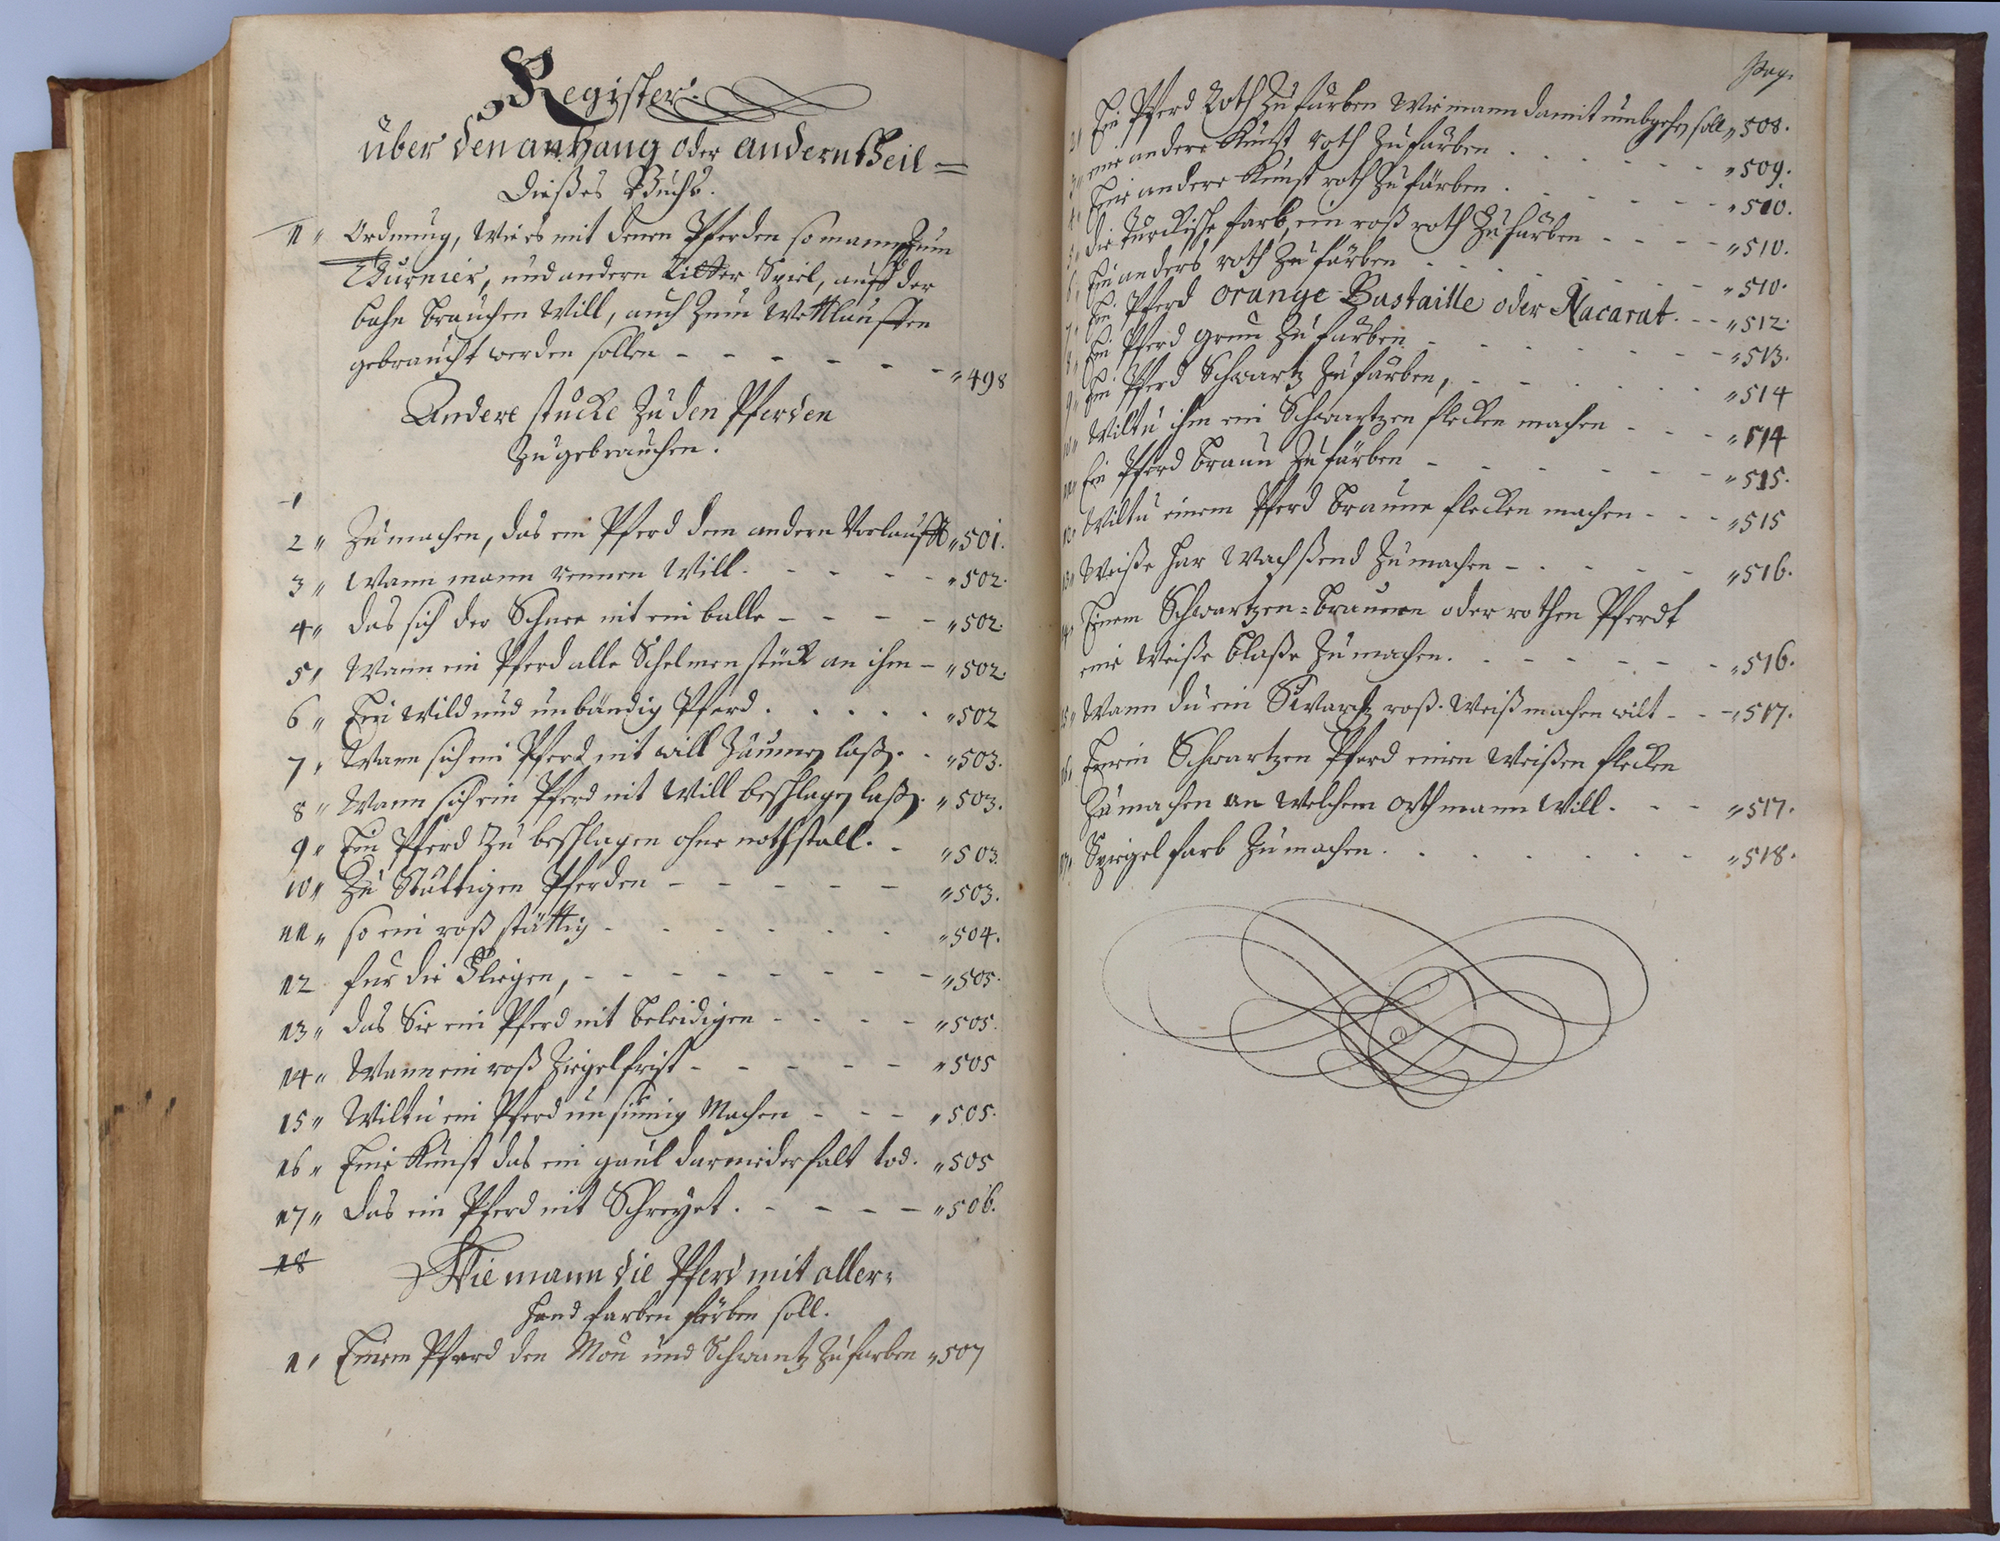 Register.
über den anhang oder andern theil =
Dießes Buchs.
1 " Ordnung, Wie es mit denen Pferden so mann zum
Thurnier, und andern Ritter Spiel, auff der
bahn brauchen Will, auch zum Wettlauffen
gebraucht werden sollen - - - - - - " 498
Andere stücke zu den Pferden
zu gebrauchen.
1
2 " Zu machen, das ein Pferd dem andern Vorlaufft " 501.
3 " Wann mann rennen Will. - - - - - " 502.
4 " das sich der Schnee nit ein balle - - - - " 502.
5 " Wann ein Pferd alle Schelmen stück an ihm - " 502.
6 " Ein Wild und unbändig Pferd . . . . . " 502
7 " Wann sich ein Pferd nit will Zäumen laß. - " 503.
8 " Wann sich ein Pferd nit Will beschlagen laß. " 503.
9 " Ein Pferd zu beschlagen ohne nothstall. - " 503.
10 " Zu Stättigen Pferden - - - - - " 503.
11 " so ein roß stättig - - - - - - " 504.
12 für die Fliegen, - - - - - - - - " 505.
13 " das Sie ein Pferd nit beleidigen - - - - " 505.
14 " Wann ein roß Ziegel frist - - - - - " 505
15 " Wiltu ein Pferd unsinnig Machen - - - " 505.
16 " Eine Kunst das ein gaul darnieder falt tod. " 505
17 " das ein Pferd nit Schreyet. - - - - " 506.
18
Wie mann die Pferd mit aller-
hand farben färben soll.
1 " Einem Pferd den Mon und Schwantz zu farben " 507
Pag.
2 " Ein Pferd Roth zu färben Wie mann damit umbgehen soll " 508.
3 " eine andere Kunst roth zu färben . - - - - - " 509.
4 " Eine andere Kunst roth zu färben . - - - - - " 510.
5 " die Türckische farb, ein roß roth zu färben - - - - " 510.
6 " Ein anders roth zu färben - - - - - - - " 510.
7 " Ein Pferd orange Bastaille oder Nacarat. - - " 512.
8 " Ein Pferd grün zu färben - - - - - - - " 513.
9 " Ein Pferd Schwartz zu färben, - - - - - - " 514
10 " Wiltu ihm ein Schwartzen flecken machen - - - " 514
11 " Ein Pferd braun zu färben - - - - - - " 515.
12 " Wiltu einem Pferd braune flecken machen - - - " 515
13 " Weiße har Wachßend zu machen - - - - - " 516.
14 " Einem Schwartzen = braunen oder rothen Pferdt
eine Weiße blaße zu machen. - - - - - - " 516.
15 " Wann du ein Schwartz roß Weiß machen wilt - - " 517.
16 " Einem Schwartzen Pferd einen Weißen flecken
zu machen an Welchem orth mann Will. - - " 517.
17 " Spiegel farb zu machen. - - - - - - " 518.